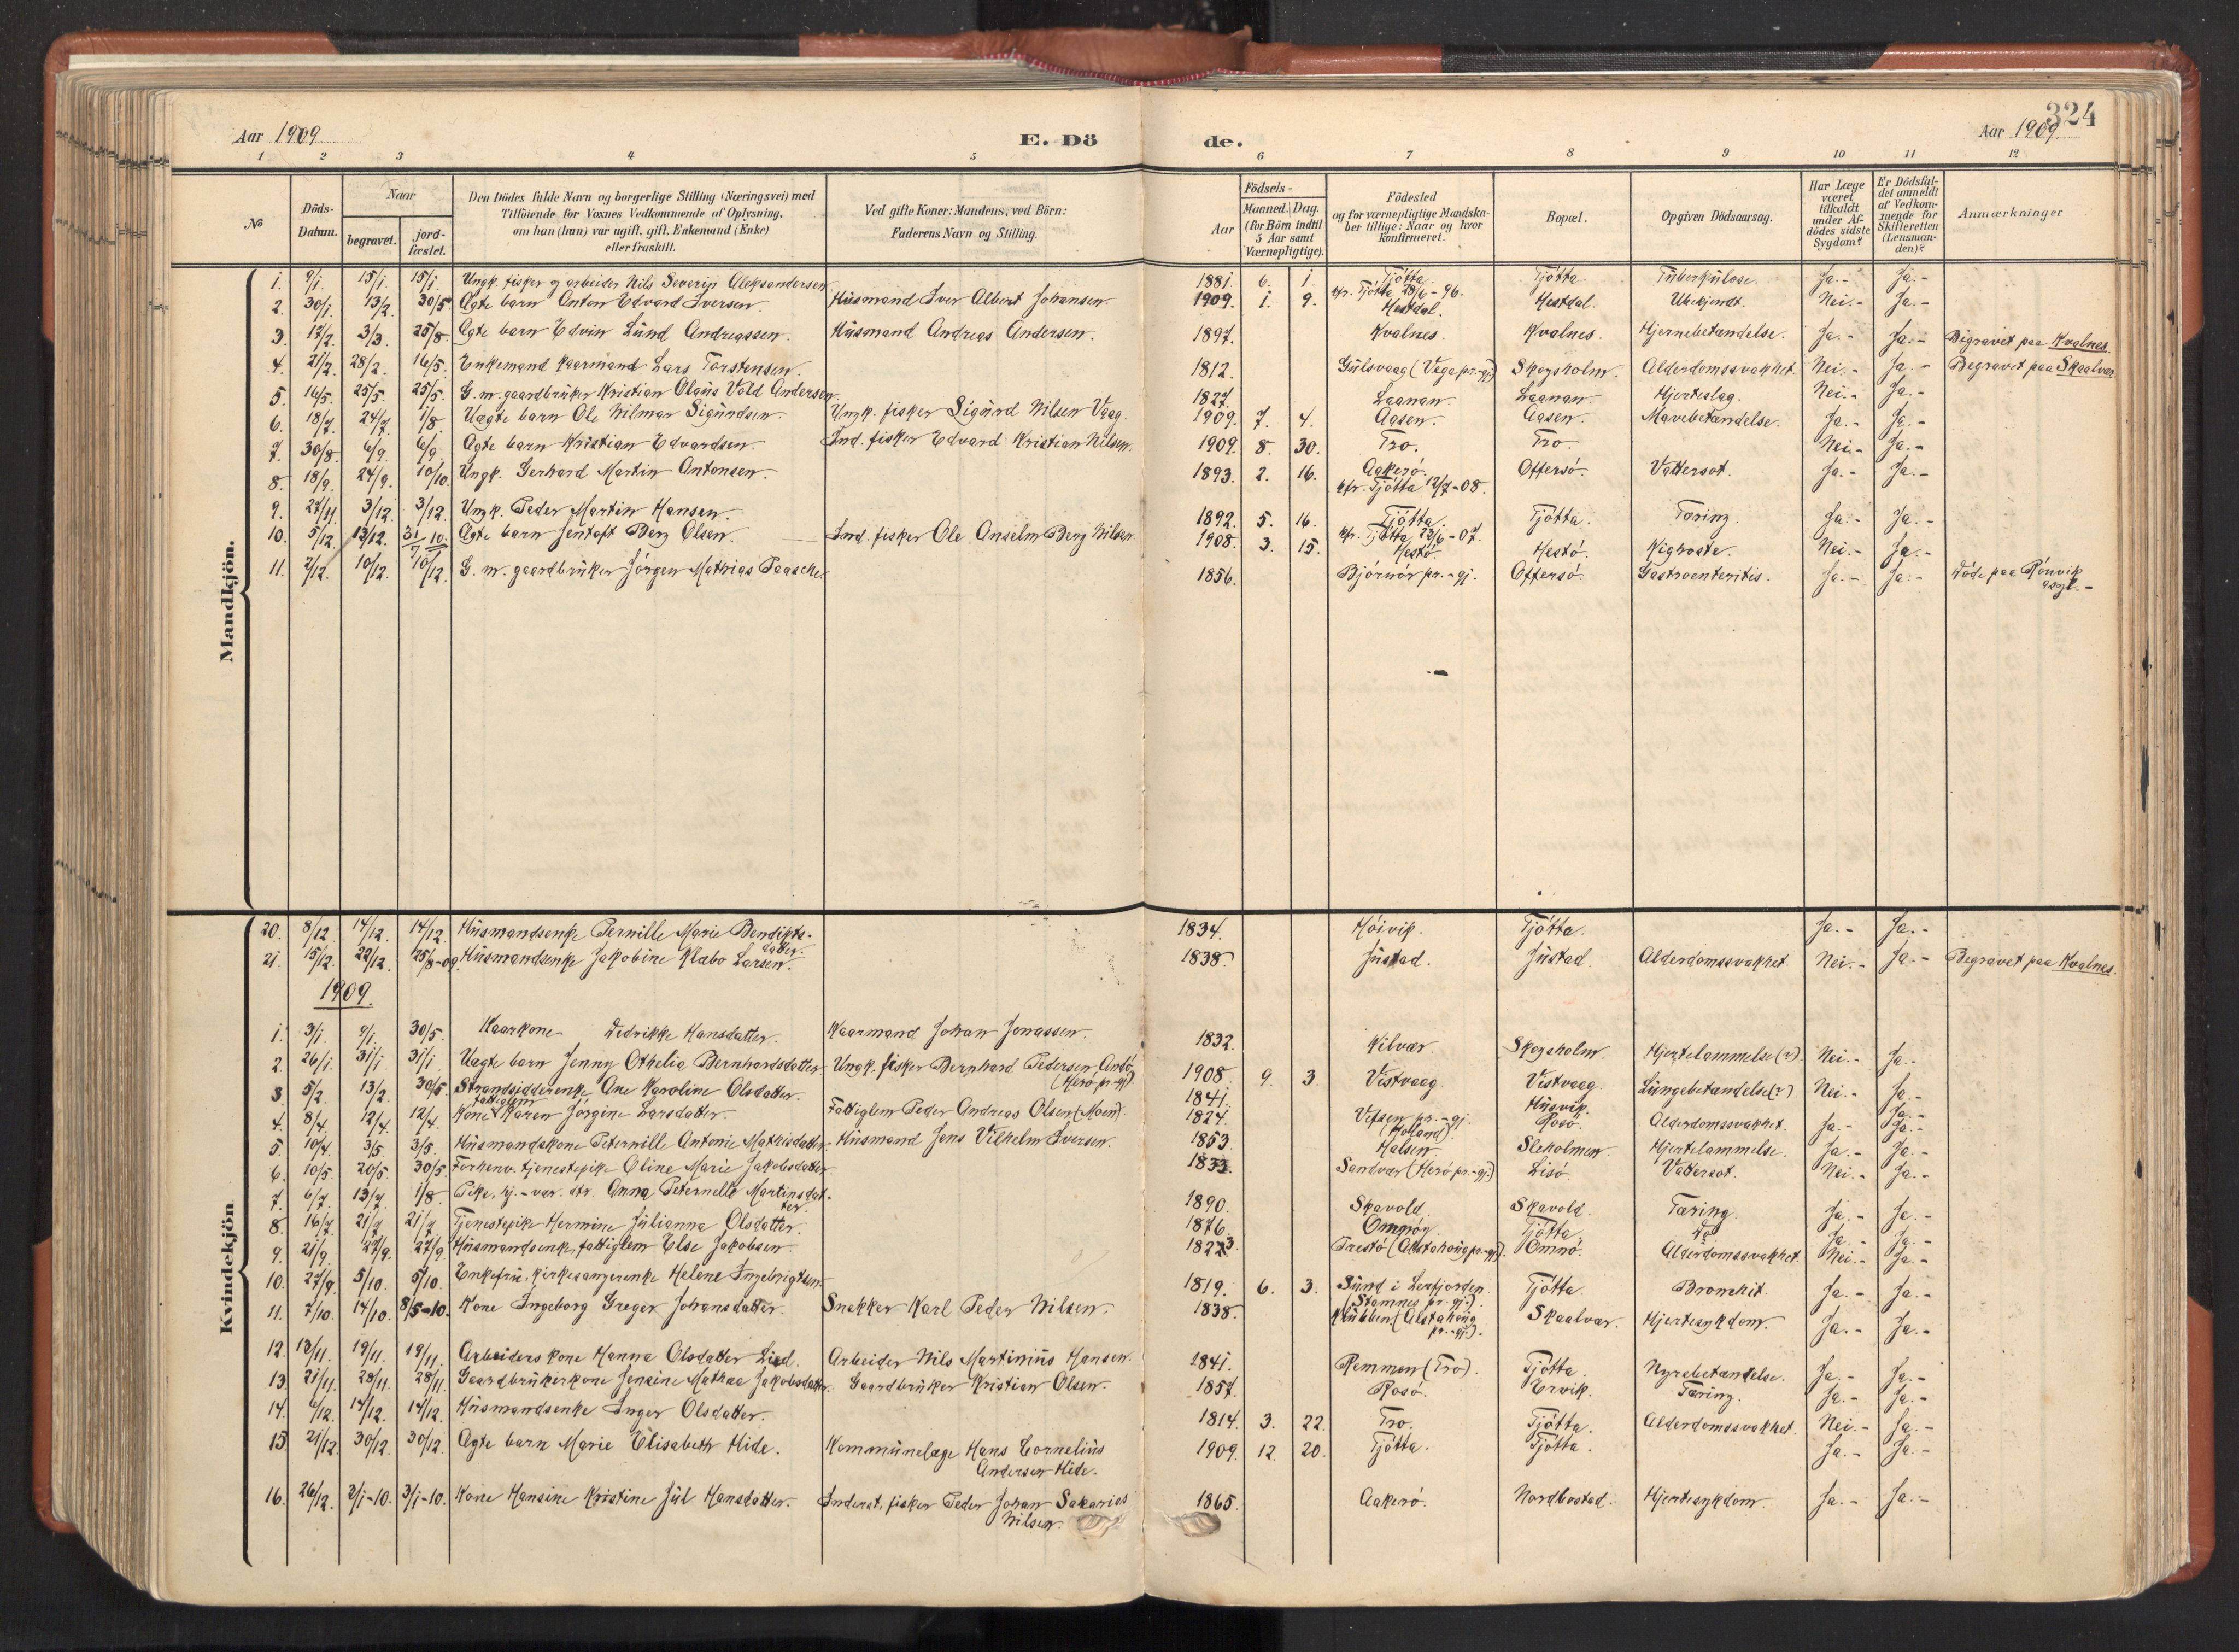 324
Aar 1909 E. Dö de. Aar 1909
1 2 3 4 5 6 7 8 9 10 11 12
No
Döds-Datum.
Naar
begravet.
jord-fæstet.
Den Dödes fulde Navn og borgerlige Stilling (Næringsvei) med
Tilföiende for Voxnes Vedkommende af Oplysning,
om han (hun) var ugift, gift, Enkemand (Enke)
eller fraskilt.
Ved gifte Koner: Mandens, ved Börn:
Faderens Navn og Stilling.
Födsels-
Aar
Maaned. Dag.
(for Börn indtil
5 Aar samt
Værnepligtige).
Födested
og for værnepligtige Mandska-
ber tillige: Naar og hvor
konfirmeret.
Bopæl.
Opgiven Dödsaarsag.
Har Læge
været
tilkaldt
under Af-
dödes sidste
Sygdom?
Er Dödsfal-
det anmeldt
af Vedkom-
mende for
Skifteretten
(Lensman-
den)?
Anmærkninger
Mandkjön.
1. 9/1. 15/1. 15/1. Ungk. fisker og arbeider Nils Severin Aleksandersen 1881. 6. 1. Tjøtta. Tjøtta. Tuberkulose. Ja.- Ja.-
kfr. Tjøtta 28/6-96.
2. 30/1. 13/2. 30/5. Ægte barn Anton Edvard Iversen. Husmand Iver Albert Johansen. 1909. 1. 9. Hestdal. Hestdal. Ubekjendt. Nei.- Ja.-
3. 17/2. 3/3. 25/8. Ægte barn Edvin Lund Andreassen. Husmand Andreas Andersen. 1897. Kvalnes. Kvalnes. Hjernebetændelse. Ja.- Ja.- Begravet paa Kvalnes.
4. 21/2. 28/2. 16/5. Enkemand kaarmand Lars Torstensen. 1812. Gulsvaag (Vega pr.-gj.) Skogsholm. Alderdomssvakhet. Nei.- Ja.- Begravet paa Skaalvær.
5. 16/5. 25/5. 25/5. G. m. gaardbruker Kristian Olaus Vold Andersen. 1827. Laanan. Laanan. Hjerteslag. Nei.- Ja.-
6. 18/7. 24/7. 1/8. Uægte barn Ole Hilmar Sigurdsen. Ungk. fisker Sigurd Nilsen Vaag. 1909. 7. 4. Aasen. Aasen. Mavebetændelse. Ja.- Ja.-
7. 30/8. 6/9. 6/9. Ægte barn Kristian Edvardsen. Ind. fisker Edvard Kristian Nilsen. 1909. 8. 30. Tro. Tro. Nei.- Ja.-
8. 18/9. 24/9. 10/10. Ungk. Gerhard Martin Antonsen. 1893. 2. 16. Aakerø. Offersø. Vattersot. Ja.- Ja.-
kfr. Tjøtta 12/7-08.
9. 27/11. 3/12. 3/12. Ungk. Peder Martin Hansen. 1892. 5. 16. Tjøtta. Tjøtta. Tæring. Ja.- Ja.-
kfr. Tjøtta 23/6-07.
10. 5/12. 13/12. 31/7-10. Ægte barn Jentoft Berg Olsen. Ind. fisker Ole Anselm Berg Nilsen 1908. 3. 15. Hestø. Hestø. Kighoste. Nei.- Ja.-
11. 2/12. 10/12. 10/12. G. m. gaardbruker Jørgen Mathias Paasche. 1856. Bjørnør pr.-gj. Offersø. Gastroenteritis. Ja.- Ja.- Døde paa Rønvik
asyl.-
Kvindekjön
20. 8/12. 14/12. 14/12. Husmandsenke Pernille Marie Bendikts-
datter. 1834. Høivik. Tjøtta. Ja.- Ja.-
21. 15/12. 22/12. 25/8-09. Husmandsenke Jakobine Klæbo Larsen. 1838. Justad. Justad. Alderdomssvakhet. Nei.- Ja.- Begravet paa Kvalnes.
1909.
1. 3/1. 9/1. 30/5. Kaarkone Dedrikke Hansdatter. Kaarmand Johan Jonassen. 1832. Kilvær. Skogsholm. Hjertelammelse(?) Nei.- Ja.-
2. 26/1. 31/1. 31/1. Uægte barn Jenny Othelia Bernhardsdatter. Ungk. fisker Bernhard Pedersen Andø. 1908. 9. 3. Vistvaag. Vistvaag. Lungebetændelse(?). Nei.- Ja.-
(Herø pr.-gj.)
3. 5/2. 13/2. 30/5. Strandsidderenke Ane Karoline Olsdatter. 1841. Husvik. Ja.-
fattiglem
4. 8/4. 12/4. 12/4. Kone Karen Jørgine Larsdatter. Fattiglem Peder Andreas Olsen (Moen). 1824. Vefsen pr.-gj. Rosø. Alderdomssvakhet. Ja.- Ja.-
(Holland).
5. 10/4. 3/5. 3/5. Husmandskone Peternille Antonie Mathisdatter. Husmand Jens Vilhelm Iversen. 1853. Halsen. Sleholmen. Hjertelammelse. Ja.- Ja.-
6. 10/5. 20/5. 30/5. Forhenv. tjenestepike Oline Marie Jakobsdatter. 1833. Sandvær (Herø pr.-gj.) Lisø. Vattersot. Nei.- Ja.-
7. 6/7. 13/7. 1/8. Pike, hj.-vær. dtr. Anna Peternelle Martinsdat-
ter. 1890. Skavold. Skavold. Tæring. Ja.- Ja.-
8. 16/7. 21/7. 21/7. Tjenestepike Hermine Julianna Olsdatter. 1876. Omnøy. Tjøtta. Do. Ja.- Ja.-
9. 21/9. 27/9. 27/9. Husmandsenke, fattiglem Else Jakobsen. 1823. Trestø (Alstahaug pr.-gj.) Omnø. Alderdomssvakhet. Nei.- Ja.-
10. 27/9. 5/10. 5/10. Enkefru, kirkesangerenke Helene Ingebrigtsen. 1819. 6. 3. Sund i Leirfjorden. Tjøtta. Bronchit. Ja.- Ja.-
(Stamnes pr.-gj.).
11. 7/10. 14/10. 8/5-10. Kone Ingeborg Greger Johansdatter. Snekker Karl Peder Nilsen. 1838. Klubben (Alstahaug Skaalvær. Hjertesykdom. Ja.- Ja.-
pr.-gj.).
12. 13/11. 19/11. 19/11. Arbeiderskone Hanna Olsdatter Lied. Arbeider Nils Martinius Hansen. 1841. Remmen (Tro). Tjøtta. Nyrebetændelse. Ja.- Ja.-
13. 21/11. 28/11. 28/11. Gaardbrukerkone Jensine Mathea Jakobsdatter. Gaardbruker Kristian Olsen. 1857. Rosø. Ervik. Tæring. Ja.- Ja.-
14. 6/12. 14/12. 14/12. Husmandsenke Inger Olsdatter. 1814. 3. 22. Tro. Tjøtta. Alderdomssvakhet. Nei.- Ja.-
15. 21/12. 30/12. 30/12. Ægte barn Marie Elisabeth Hide. Kommunelæge Hans Cornelius
Andersen Hide. 1909. 12. 20. Tjøtta. Tjøtta. Ja.- Ja.-
16. 26/12. 2/1-10. 3/1-10. Kone Hansine Kristine Jul Hansdatter. Inderst, fisker Peder Johan Sakarias
Nilsen. 1865. Aakerø. Nordbostad. Hjertesykdom. Ja.- Ja.-